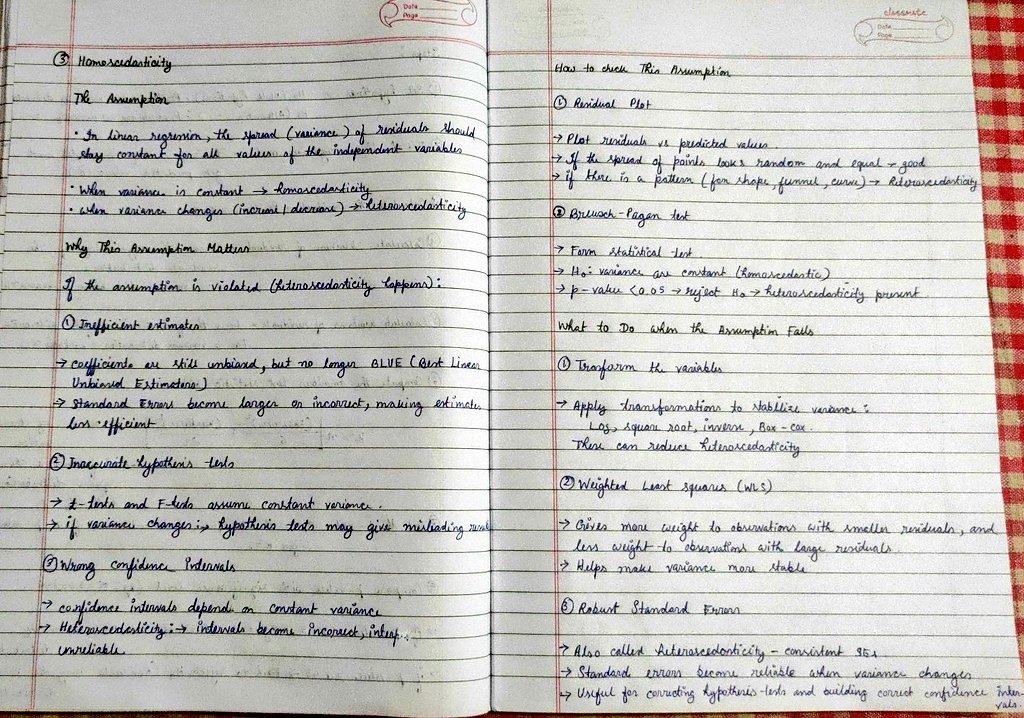 Date
Page
③ Homoscedasticity
The Assumption
• In linear regression, the spread (variance) of residuals should
stay constant for all values of the independent variables
• When variance is constant → homoscedasticity
• when variance changes (increase/decrease) → heteroscedasticity
Why This Assumption Matters
If the assumption is violated (heteroscedasticity happens):
① Inefficient estimates
→ coefficients are still unbiased, but no longer BLUE (Best Linear
Unbiased Estimators)
→ Standard Errors become larger or incorrect, making estimates
less efficient
② Inaccurate hypothesis tests
→ t-tests and F-tests assume constant variance.
→ if variance changes:→ hypothesis tests may give misleading
③ Wrong confidence intervals
→ confidence intervals depend on constant variance
→ Heteroscedasticity:→ intervals become incorrect,
unreliable.
classmate
Date
Page
How to check This Assumption
① Residual Plot
→ Plot residuals vs predicted values
→ If the spread of points looks random and equal → good
→ if there is a pattern (fan shape, funnel, curve) → Heteroscedasticity
② Breusch-Pagan test
→ Form statistical test
→ H₀: variance are constant (homoscedastic)
→ p-value <0.05 → reject H₀ → heteroscedasticity present
What to Do when the Assumption Fails
① Trasform the variables
→ Apply transformations to stabilize variance:
Log, square root, inverse, Box-cox.
These can reduce heteroscedasticity
② Weighted Least squares (WLS)
→ Gives more weight to observations with smaller residuals, and
less weight to observations with large residuals
→ Helps make variance more stable
③ Robust Standard Errors
→ Also called Heteroscedasticity - consistent SEs
→ Standard errors become reliable when variance changes
→ Useful for correcting hypothesis-tests and building correct confidence inter-
vals.